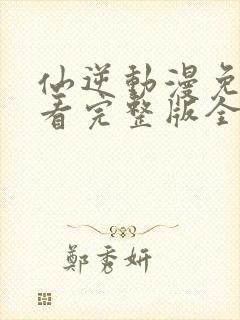 仙逆動漫免
看完整版全
鄭秀妍